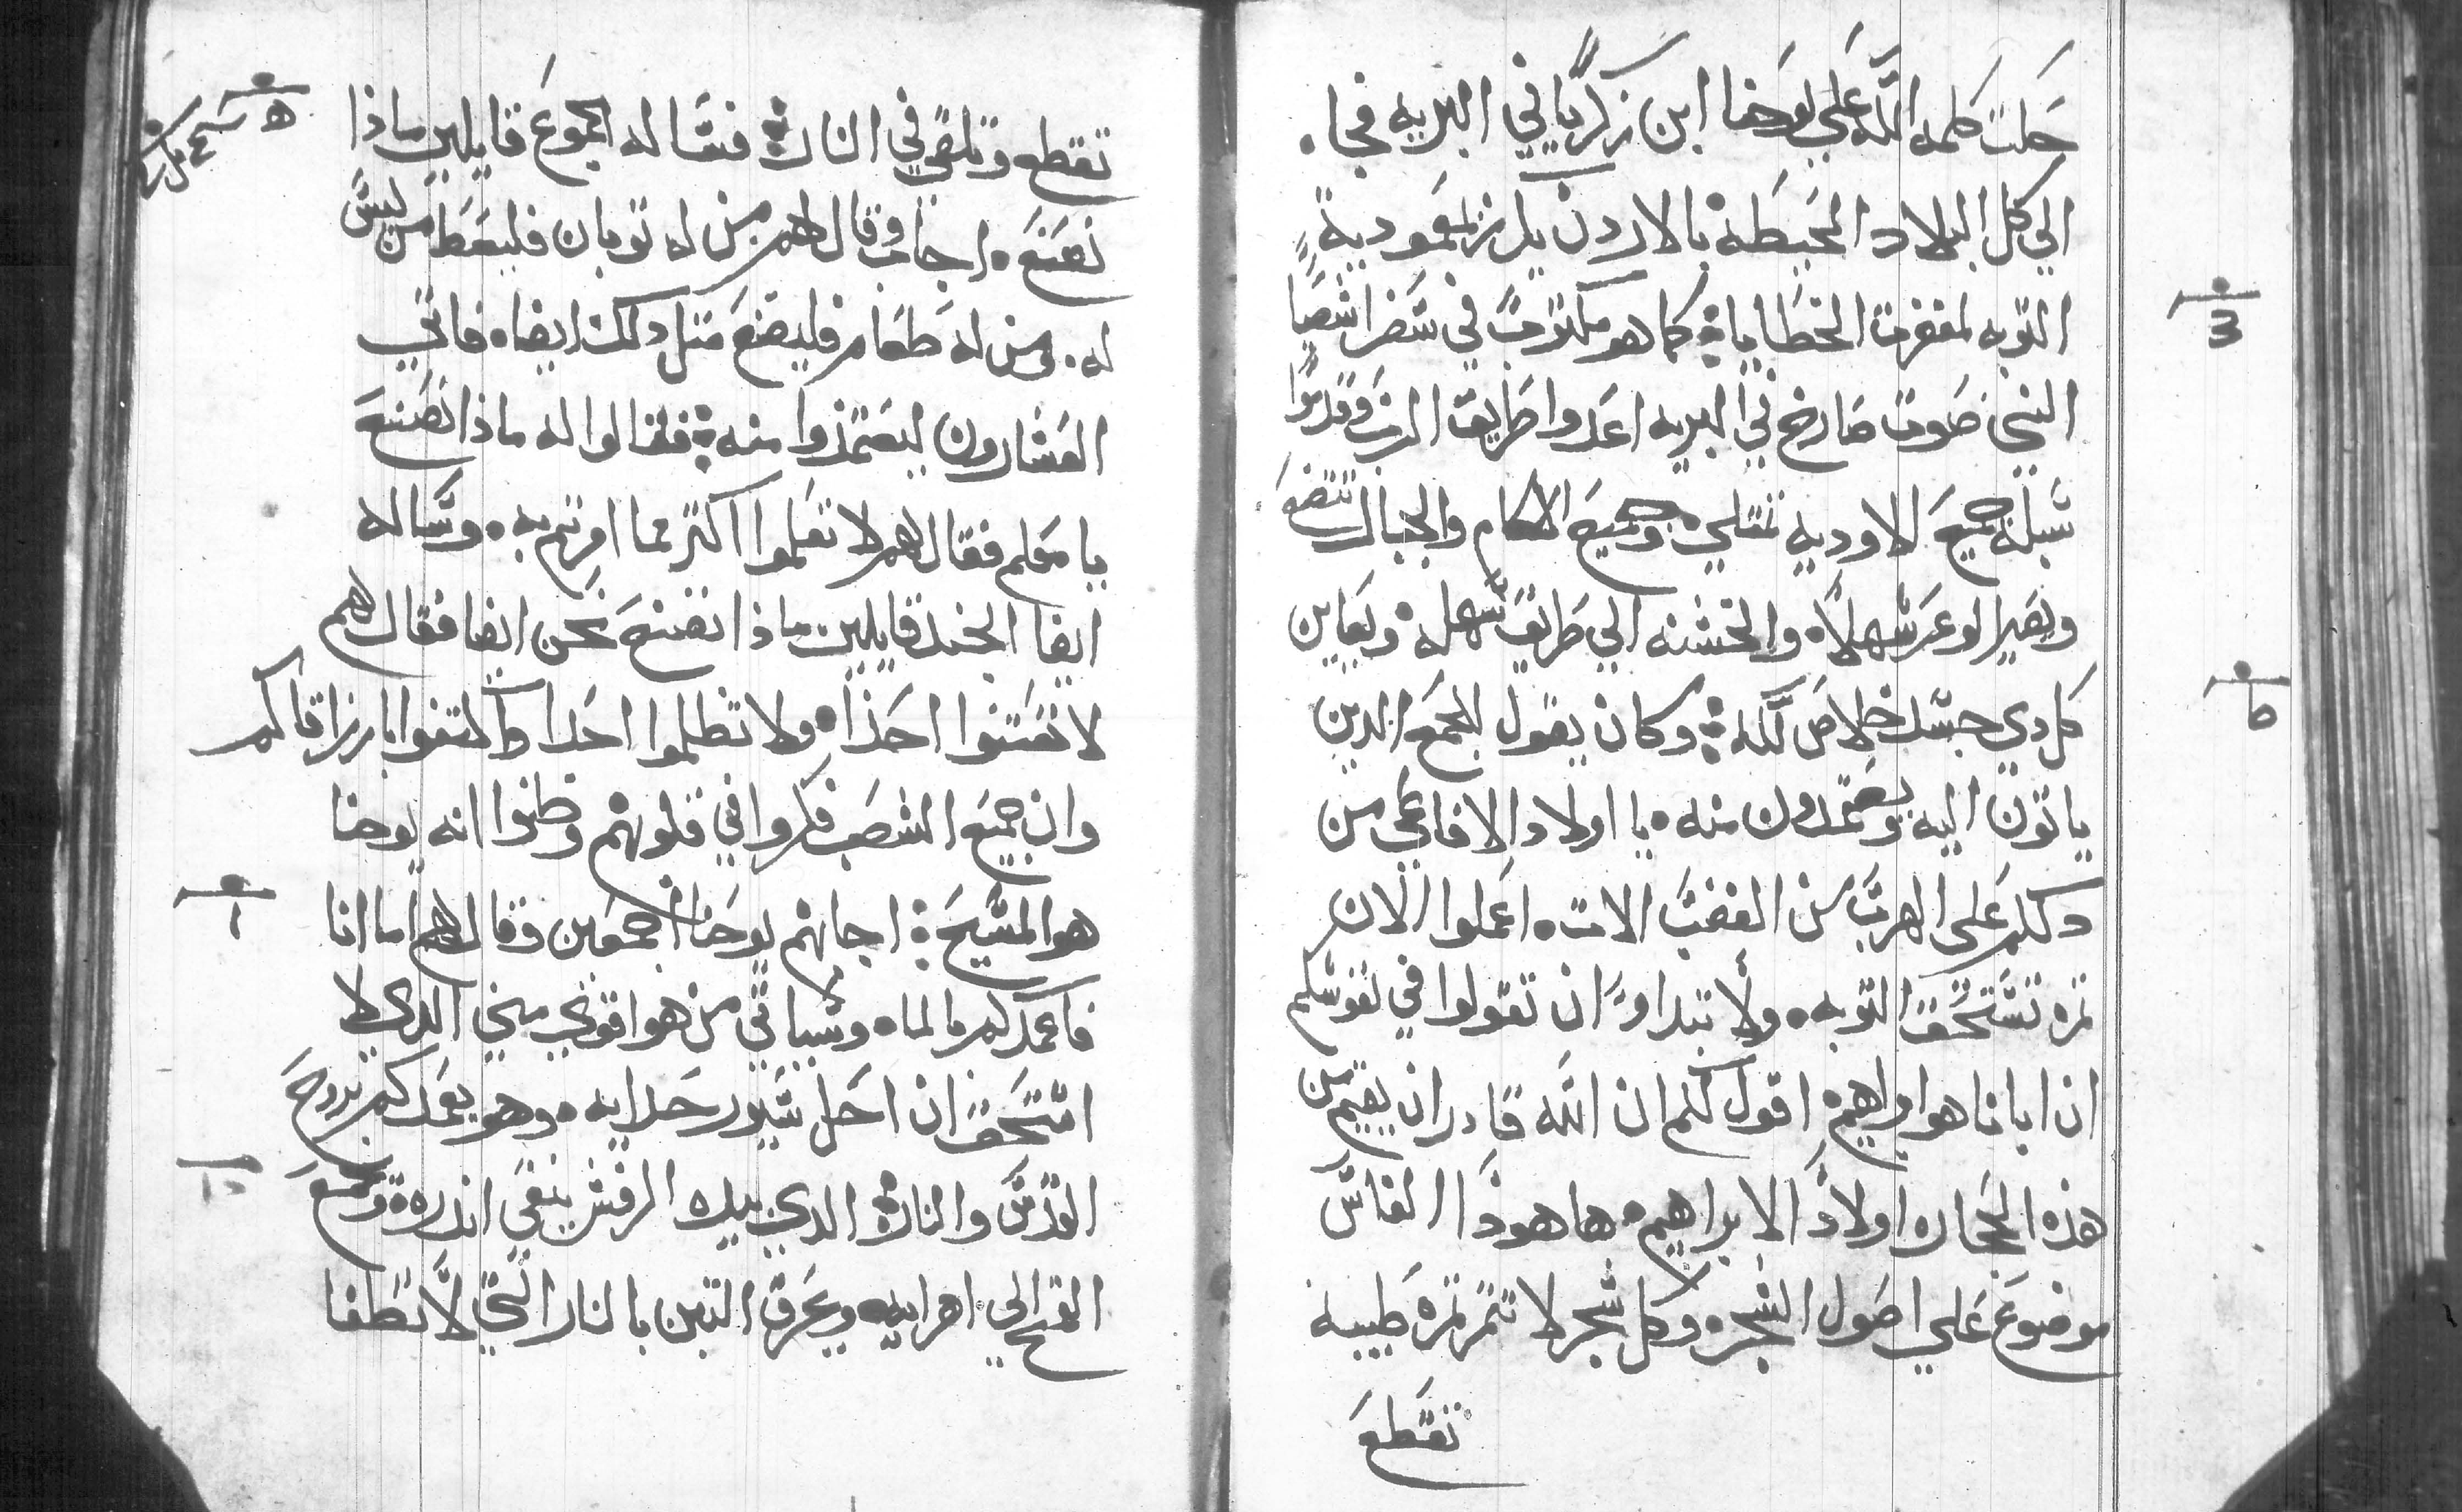 حلت كلمه الله علي يوحنا ابن زكريا في البريه فجا.
الي كل البلاد المحيطة بالاردن يكرز بمعمودية
التوبه لمغفرت الخطايا؛ كما هو مكتوب في سفر اشعيا
النبي صوت صارخ في البريه اعدوا طريق الرب وقوموا
سبله جميع الاوديه تمتلي وجميع الاكام والجبال تتضع
ويصير الوعر سهلا، والخشنه الي طريق سهله، ويعاين
كل دي جسد خلاص الله؛ وكان يقول للجمع الدين
ياتون اليه ويعتمدون منه. يا اولاد الافاعي من
دلكم علي الهرب من الغضب الات. اعملوا الان
ثمره تستحق التوبه. ولا تبداوا ان تقولوا في نفوسكم
ان ابانا هو ابراهيم، اقول لكم ان الله قادر ان يقيم من
هذه الحجاره اولادا لابراهيم. ها هوذا الفاس
موضوع علي اصول الشجر، وكل شجر لا تثمر ثمره طيبه
تقطع
تقطع وتلقي في النار؛ فساله الجموع قايلين ماذا
نصنع. اجاب وقال لهم من له ثوبان فليعط من ليس
له. ومن له طعام فليصنع مثل دلك ايضا، فاتي
العشارون ليعتمدوا منه؛ فقالوا له ماذا نصنع
يا معلم فقال لهم لا تعملوا اكثر مما امرتم به. وساله
ايضا الجند قايلين ماذا نصنع نحن ايضا فقال لهم
لا تعنتوا احدا، ولا تظلموا احدا واكتفوا بارزاقكم
وان جميع الشعب فكروا في قلوبهم وظنوا انه يوحنا
هو المسيح؛ اجابهم يوحنا اجمعين وقال لهم اما انا
فاعمدكم بالماء وسياتي من هو اقوي مني الدي لا
استحق ان احل سيور حدايه. وهو يعمدكم بروح
القدس والنار؛ الدي بيده الرفش ينقي اندره ويجمع
القمح الي اهرايه ويحرق التبن بالنار التي لا تطفا